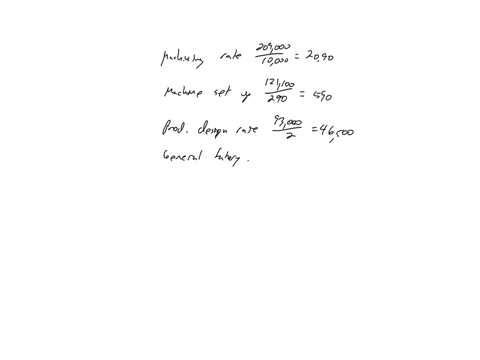 machining rate 209,000/10,000 = 20.90
Machine set up 121,100/290 = 590
Prod. design rate 93,000/2 = 46,500
General factory.